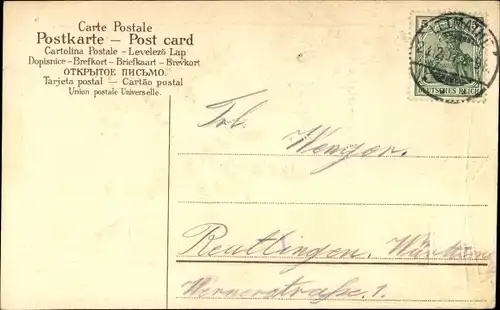 Carte Postale
Postkarte – Post card
Cartolina Postale - Levelező Lap
Dopisnice - Brefkort - Briefkaart - Brevkort
ОТКРЫТОЕ ПИСЬМО.
Tarjeta postal — Cartão postal
Union postale Universelle.
DEUTSCHES REICH
Frl.
Reutlingen.
Wernerstraße. 1.